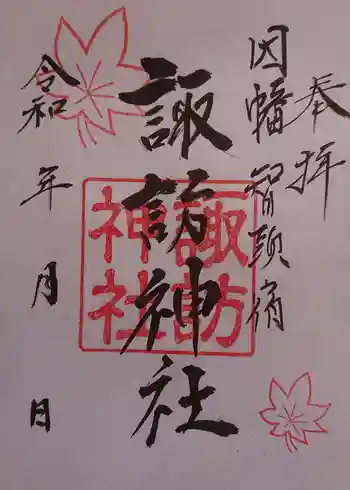 奉拝
因幡 智頭宿
諏訪神社
諏訪
神社
令和 年 月 日